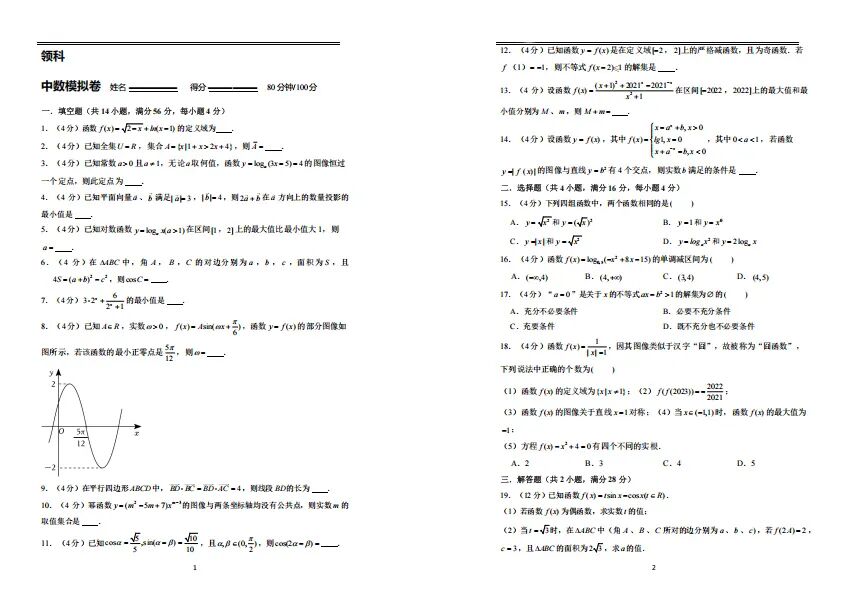 领科
中数模拟卷 姓名 得分 80分钟/100分
一．填空题（共14小题，满分56分，每小题4分）
1．（4分）函数 f(x)=√2-x+ln(x-1) 的定义域为 ．
2．（4分）已知全集 U=R，集合 A={x|1+x>2x+4}，则 A̅= ．
3．（4分）已知常数 a>0 且 a≠1，无论 a 取何值，函数 y=logₐ(3x-5)+4 的图像恒过
一个定点，则此定点为 ．
4．（4分）已知平面向量 a、b 满足 |a|=3，|b|=4，则 2a+b 在 a 方向上的数量投影的
最小值是 ．
5．（4分）已知对数函数 y=logₐx(a>1) 在区间 [1，2] 上的最大值比最小值大1，则
a= ．
6．（4分）在 ΔABC 中，角 A，B，C 的对边分别为 a，b，c，面积为 S，且
4S=(a+b)²-c²，则 cosC= ．
7．（4分）3•2ˣ+6/(2ˣ+1) 的最小值是 ．
8．（4分）已知 A∈R，实数 ω>0，f(x)=Asin(ωx+π/6)，函数 y=f(x) 的部分图像如
图所示，若该函数的最小正零点是 5π/12，则 ω= ．
y
2
O 5π/12 x
-2
9．（4分）在平行四边形 ABCD 中，BD•BC=BD•AC=4，则线段 BD 的长为 ．
10．（4分）幂函数 y=(m²-5m+7)xᵐ⁻³ 的图像与两条坐标轴均没有公共点，则实数 m 的
取值集合是 ．
11．（4分）已知 cosα=√5/5,sin(α-β)=√10/10，且 α,β∈(0,π/2)，则 cos(2α-β)= ．
1
12．（4分）已知函数 y=f(x) 是在定义域 [-2，2] 上的严格减函数，且为奇函数．若
f（1）=-1，则不等式 f(x-2)≤1 的解集是 ．
13．（4分）设函数 f(x)=((x+1)²+2021ˣ-2021⁻ˣ)/(x²+1) 在区间 [-2022，2022] 上的最大值和最
小值分别为 M、m，则 M+m= ．
14．（4分）设函数 y=f(x)，其中 f(x)={x-aˣ+b,x>0 lg1,x=0 x+a⁻ˣ-b,x<0，其中 0<a<1，若函数
y=|f(x)| 的图像与直线 y=b² 有4个交点，则实数 b 满足的条件是 ．
二．选择题（共4小题，满分16分，每小题4分）
15．（4分）下列四组函数中，两个函数相同的是（ ）
A．y=√x² 和 y=(√x)² B．y=1 和 y=x⁰
C．y=|x| 和 y=√x² D．y=logₐx² 和 y=2logₐx
16．（4分）函数 f(x)=log₀.₃(-x²+8x-15) 的单调减区间为（ ）
A．(-∞,4) B．(4,+∞) C．(3,4) D．(4,5)
17．（4分）“a=0”是关于 x 的不等式 ax-b²>1 的解集为∅的（ ）
A．充分不必要条件 B．必要不充分条件
C．充要条件 D．既不充分也不必要条件
18．（4分）设函数 f(x)=1/(|x|-1)，因其图像类似于汉字“囧”，故被称为“囧函数”，
下列说法中正确的个数为（ ）
（1）函数 f(x) 的定义域为 {x|x≠1}；（2）f(f(2023))=-2022/2021；
（3）函数 f(x) 的图像关于直线 x=1 对称；（4）当 x∈(-1,1) 时，函数 f(x) 的最大值为
-1；
（5）方程 f(x)-x²+4=0 有四个不同的实根．
A．2 B．3 C．4 D．5
三．解答题（共2小题，满分28分）
19．（12分）已知函数 f(x)=tsinx-cosx(t∈R)．
（1）若函数 f(x) 为偶函数，求实数 t 的值；
（2）当 t=√3 时，在 ΔABC 中（角 A、B、C 所对的边分别为 a、b、c），若 f(2A)=2，
c=3，且 ΔABC 的面积为 2√3，求 a 的值．
2